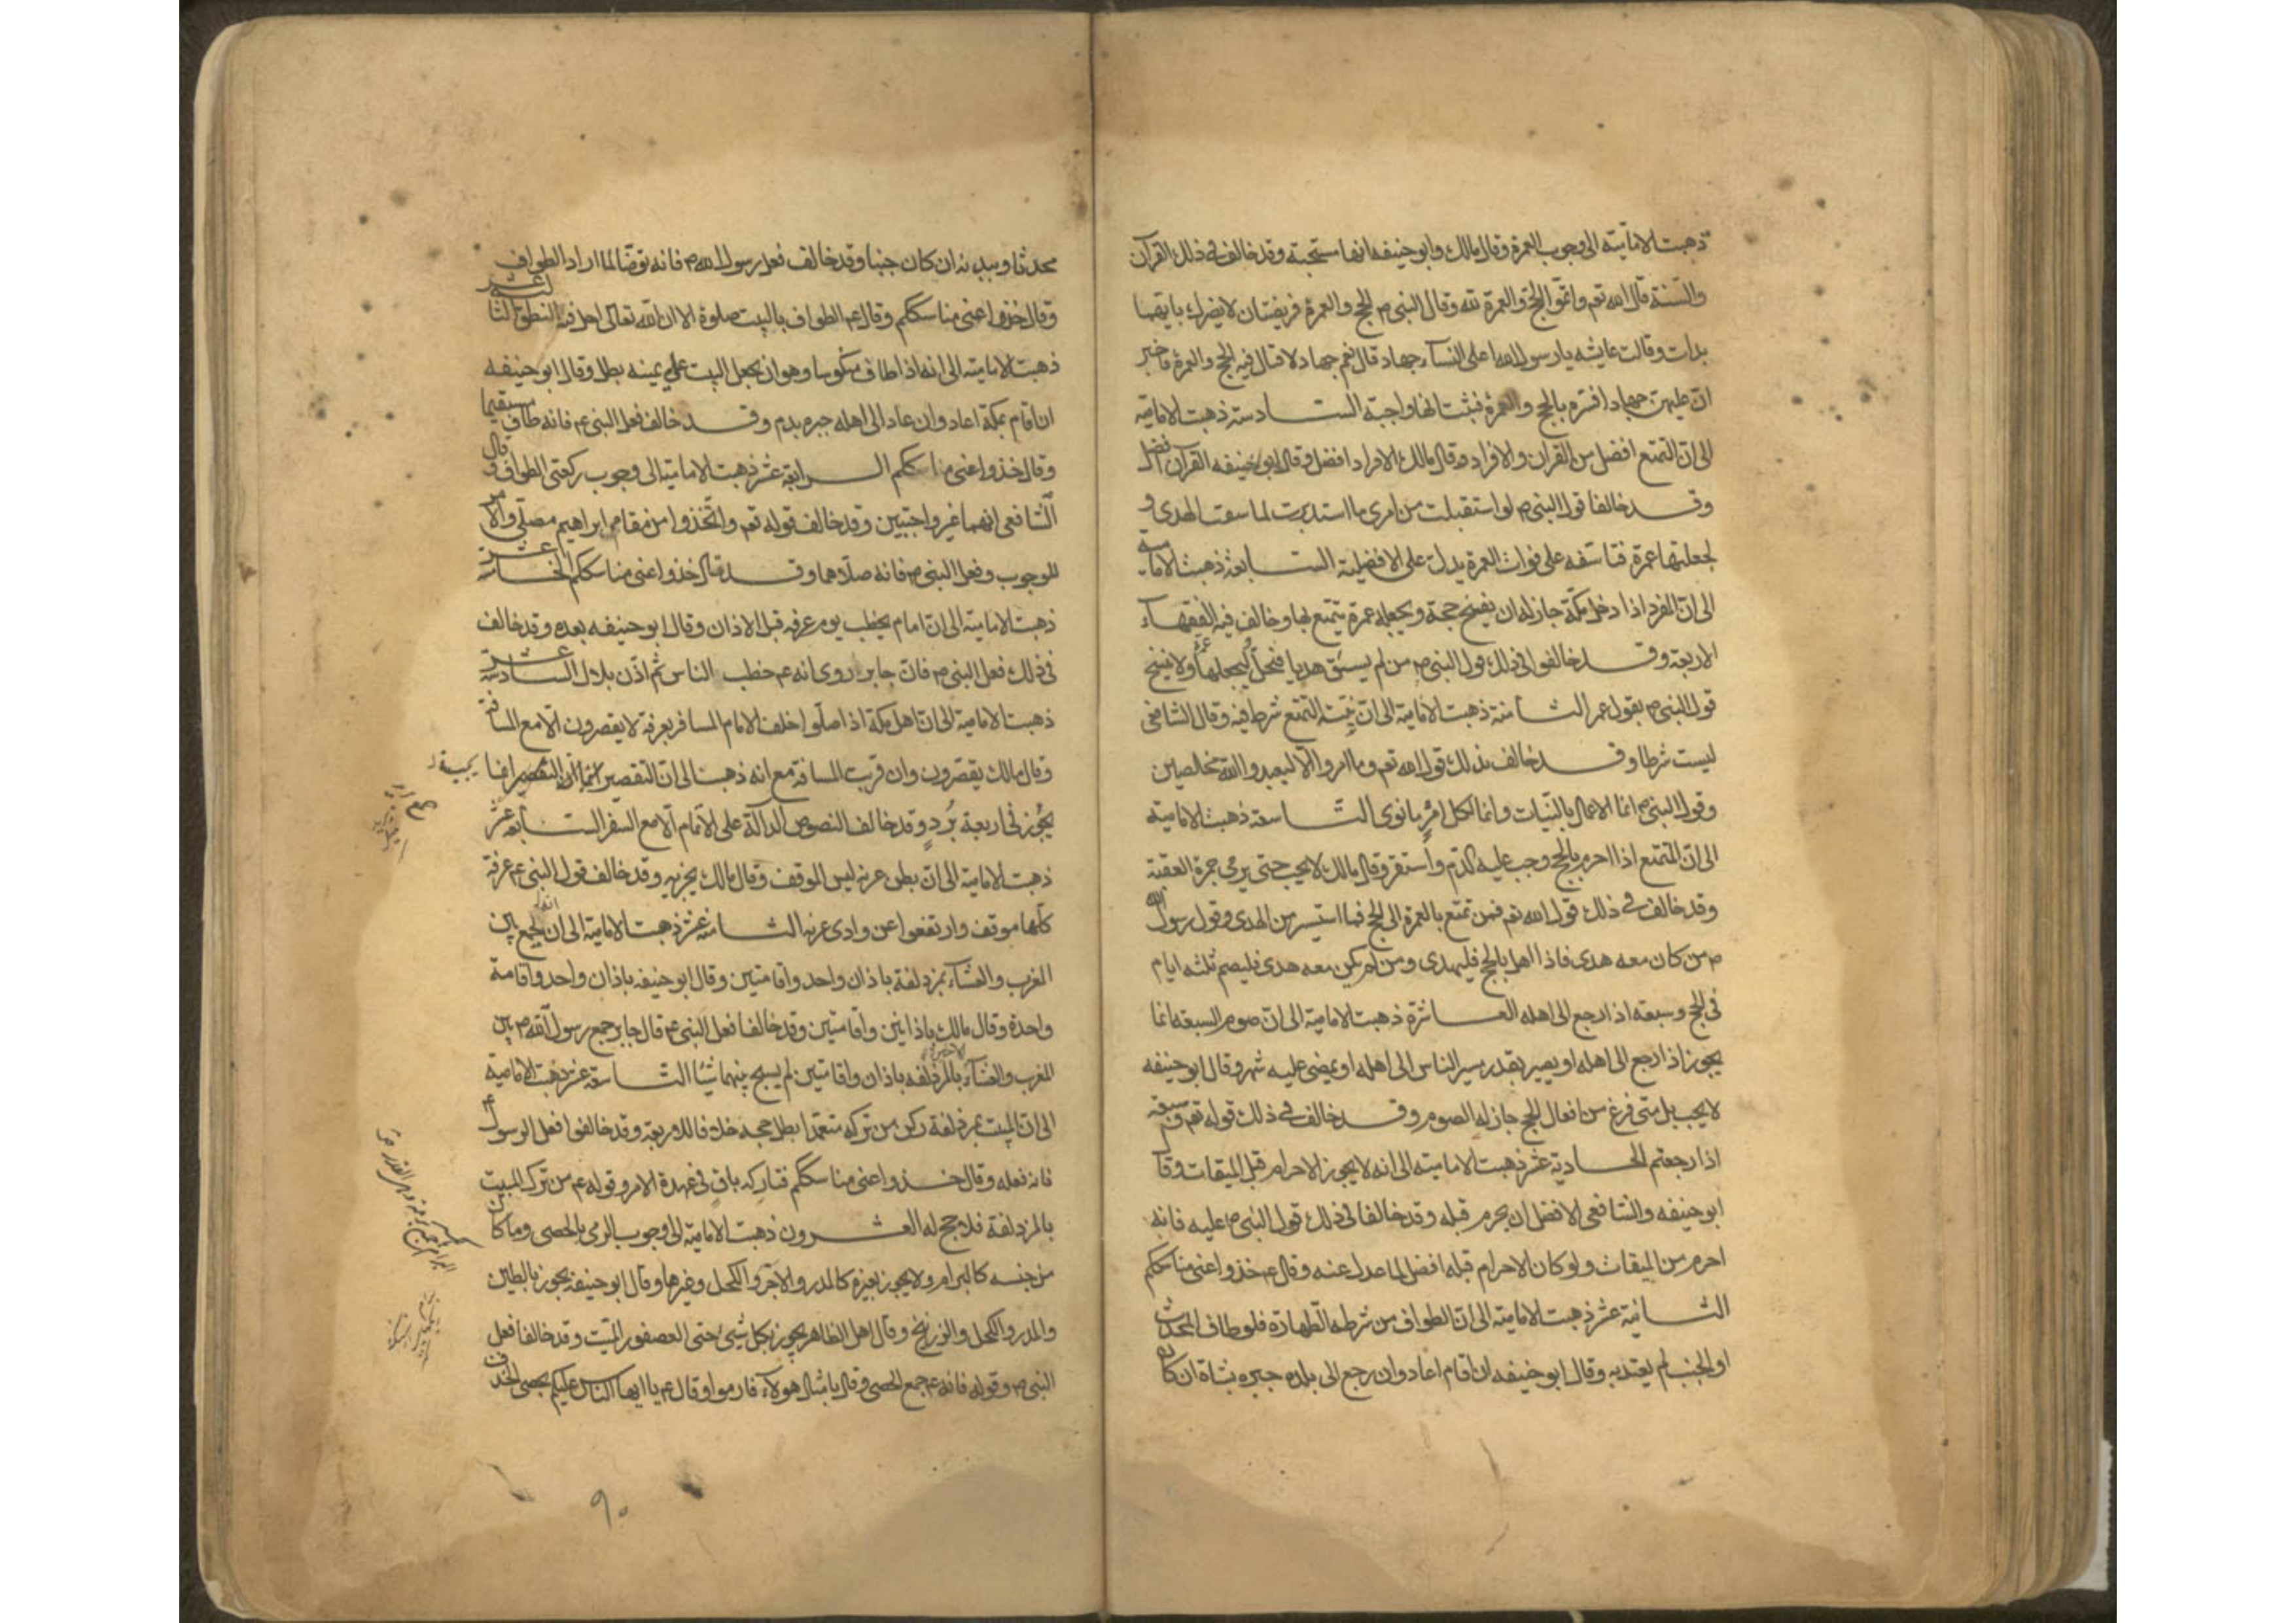 ذهبت الامامية الى وجوب العمرة وقال مالك وابو حنيفه انها مستحبة وقد خالف فى ذلك القرآن
والسنة قال الله تعم واتموا الحج والعمرة لله وقال النبى ص الحج والعمرة فريضتان لا يضرك بايهما
بدات وقالت عايشه يا رسول الله اعلى النساء جهاد قال نعم جهاد لا قتال فيه الحج والعمرة فاخبر
ان عليهن جهادا فسره بالحج والعمرة فثبت انها واجبة الســادسة ذهبت الامامية
الى ان التمتع افضل من القرآن والافراد وقال مالك الافراد افضل وقال ابو حنيفه القرآن افضل
وقــد خالفا قول النبى ص لو استقبلت من امرى ما استدبرت لما سقت الهدى و
لجعلتها عمرة فتاسفه على فوات العمرة يدل على الافضلية الســابعة ذهبت الامامية
الى ان المفرد اذا دخل مكة جاز له ان يفسخ حجة ويجعله عمرة يتمتع بها وخالف فيه الفقهاء
الاربعة وقــد خالفوا فى ذلك قول النبى ص من لم يسق هديا فليحل وليجعلها عمرة ولا ينسخ
قول النبى ص بقول عمر الثــامنة ذهبت الامامية الى ان نية التمتع شرط فيه وقال الشافعى
ليست شرطا وقــد خالف بذلك قول الله تعم وما امروا الا ليعبدوا الله مخلصين
وقول النبى ص انما الاعمال بالنيات وانما لكل امرئ ما نوى التــاسعة ذهبت الامامية
الى ان المتمتع اذا احرم بالحج وجب عليه الدم واستقر وقال مالك لا يجب حتى يرمى جمرة العقبة
وقد خالف فى ذلك قول الله تعم فمن تمتع بالعمرة الى الحج فما استيسر من الهدى وقول رسول الله
ص من كان معه هدى فاذا اهل بالحج فليهدى ومن لم يكن معه هدى فليصم ثلثه ايام
فى الحج وسبعه اذا رجع الى اهله العــاشرة ذهبت الامامية الى ان صوم السبعه انما
يجوز اذا رجع الى اهله او يصير بقدر مسير الناس الى اهله او يمضى عليه شهر وقال ابو حنيفه
لا يجب بل متى فرغ من افعال الحج جاز له الصوم وقــد خالف فى ذلك قوله تعم وسبعة
اذا رجعتم الحــادية عشر ذهبت الامامية الى انه لا يجوز الاحرام قبل الميقات وقا
ابو حنيفه والشافعى الافضل ان يحرم قبله وقد خالفا فى ذلك قول النبى ص عليه فانه
احرم من الميقات ولو كان الاحرام قبله افضل لما عدل عنه وقال عم خذوا عنى مناسككم
الثــانية عشر ذهبت الامامية الى ان الطواف من شرطه الطهارة فلو طاف المحدث
او الجنب لم يعتد به وقال ابو حنيفه ان اقام اعاد وان رجع الى بلده جبره بشاة ان كان
محدثا وببدنه ان كان جنبا وقد خالف فعل رسول الله ص فانه توضا لما اراد الطواف
وقال خذوا عنى مناسككم وقال عم الطواف بالبيت صلوة الا ان الله تعالى احل فيه النطق الثالثة عشر
ذهبت الامامية الى انه اذا طاف منكوسا وهو ان يجعل البيت على يمينه بطل وقال ابو حنيفه
ان اقام بمكة اعاد وان عاد الى اهله جبره بدم وقــد خالف فعل النبى عم فانه طاف مستقيما
وقال خذوا عنى مناسككم الــرابعة عشر ذهبت الامامية الى وجوب ركعتى الطواف وقال
الشافعى انهما غير واجبتين وقد خالف قوله تعم واتخذوا من مقام ابراهيم مصلى والامر
للوجوب وفعل النبى ص فانه صلاهما وقــد قال خذوا عنى مناسككم الخــامسة عشر
ذهبت الامامية الى ان امام يخطب يوم عرفه قبل الاذان وقال ابو حنيفه بعده وقد خالف
فى ذلك فعل النبى ص فان جابر روى انه عم خطب الناس ثم اذن بلال السادسة عشر
ذهبت الامامية الى ان اهل مكة اذا صلوا خلف الامام المسافر بعرفة لا يقصرون الا مع المسافة
وقال مالك يقصرون وان قربت المسافة مع انه ذهب الى ان التقصير انما
يجوز فى اربعة برد وقد خالف النصوص الدالة على الاتمام الا مع السفر الســابعه عشر
ذهبت الامامية الى ان بطن عرنه ليس الموقف وقال مالك يجزيه وقد خالف قول النبى عم عرفة
كلها موقف وارتفعوا عن وادى عرنه الثــامنة عشر ذهبت الامامية الى انه يجمع بين
المغرب والعشاء بمزدلفة باذان واحد واقامتين وقال ابو حنيفه باذان واحد واقامة
واحدة وقال مالك باذانين واقامتين وقد خالفا فعل النبى عم قال جابر جمع رسول الله ص بين
المغرب والعشاء بالمزدلفه باذان واقامتين لم يسبح بينهما شيئا التــاسعة عشر ذهبت الامامية
الى ان المبيت بمزدلفة ركن من تركه متعمدا بطل حجه خلافا للاربعة وقد خالفوا فعل الرسول عم
فانه فعله وقال خــذوا عنى مناسككم فتاركه باق فى عهدة الامر وقوله عم من ترك المبيت
بالمزدلفة فلا حج له العشــرون ذهبت الامامية الى وجوب الرمى بالحصى وما كان
من جنسه كالبرام ولا يجوز بغيره كالمدر والآجر والكحل وغيرها وقال ابو حنيفة يجوز بالطين
والمدر والكحل والزرنيخ وقال اهل الظاهر يجوز بكل شئ حتى العصفور الميت وقد خالفا فعل
النبى ص وقوله فانه عم جمع الحصى وقال بامثال هولاء فارموا وقال عم يا ايها الناس عليكم بحصى الخذف
٩٠